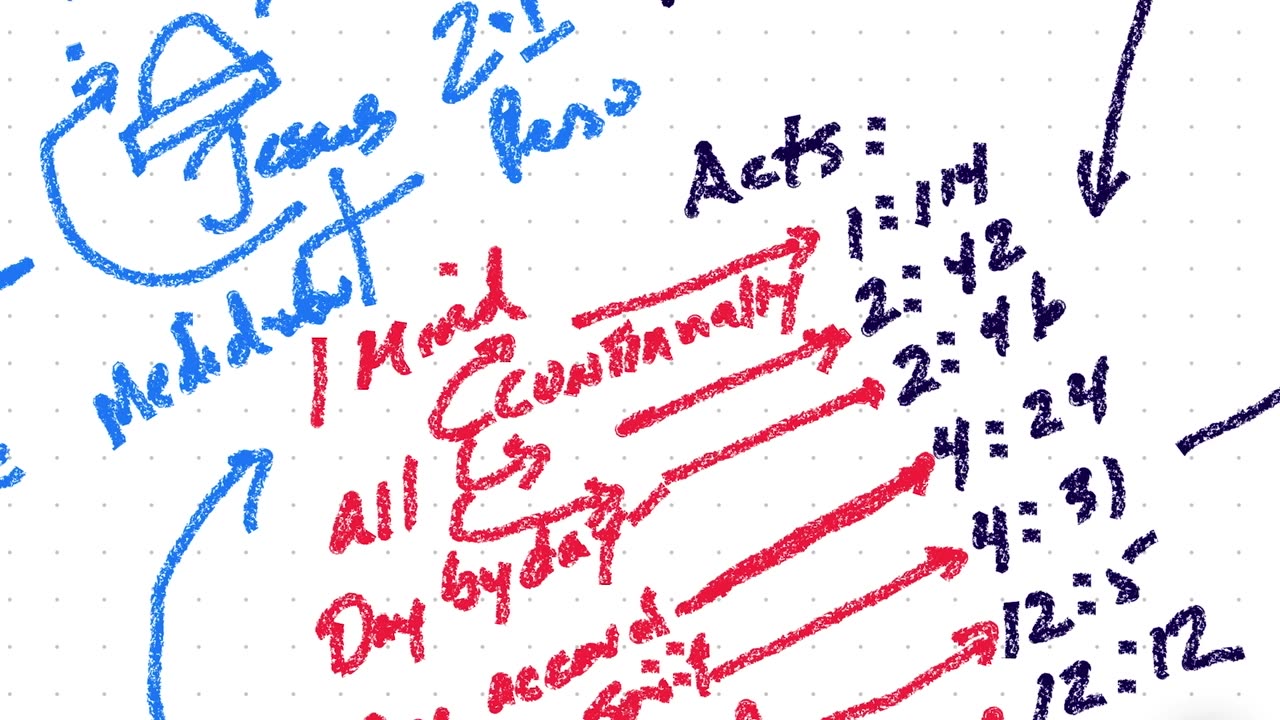 Jesus
2:1
Acts:
1:14
1 Mind
2:42
Continually
2:46
All
4:24
Day by day
4:31
accord
12:5
12:12